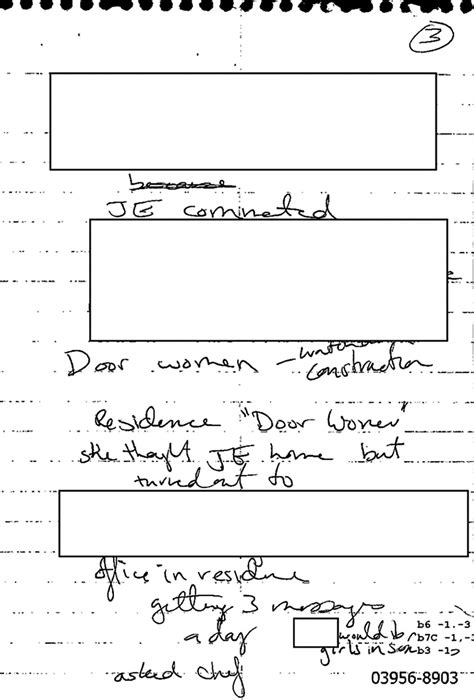 3
because
JE commented
Door women - watching
construction
Residence "Door Women"
she thought JE home but
turned out to
office in residence
getting 3 messages
a day would br b6 -1,-3
b7C -1,-
girls in b3 -1
asked chef
03956-8903